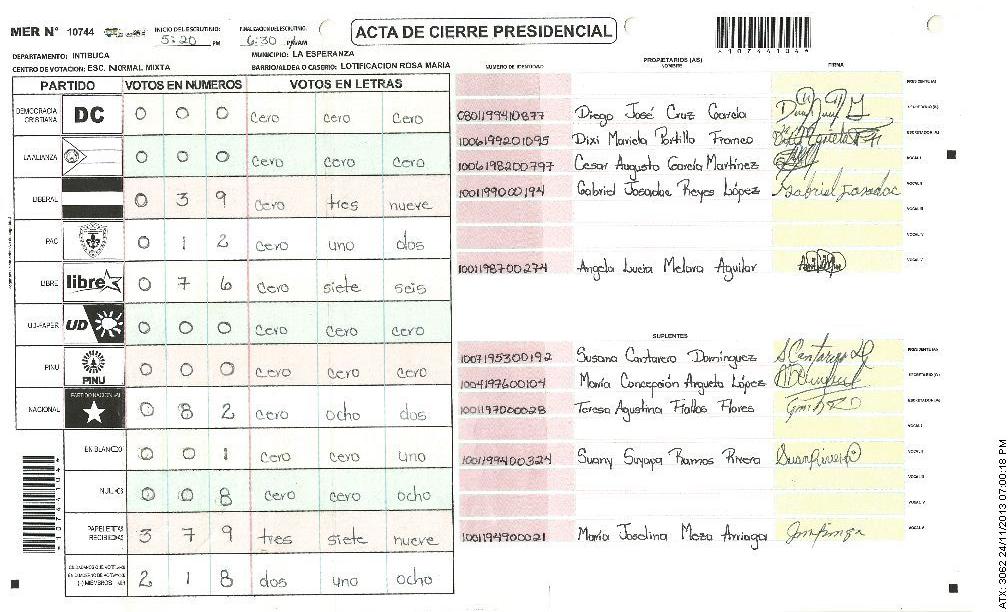 MER N° 10744 INICIO DEL ESCRUTINIO: 5:20 PM FINALIZACION ESCRUTINIO: 6:30 PM/AM ACTA DE CIERRE PRESIDENCIAL
DEPARTAMENTO: INTIBUCA MUNICIPIO: LA ESPERANZA
CENTRO DE VOTACION: ESC. NORMAL MIXTA BARRIO/ALDEA O CASERIO: LOTIFICACION ROSA MARIA
PARTIDO VOTOS EN NUMEROS VOTOS EN LETRAS
DEMOCRACIA CRISTIANA DC 0 0 0 cero cero cero
LA ALIANZA 0 0 0 cero cero cero
LIBERAL 0 3 9 cero tres nueve
PAC 0 1 2 cero uno dos
LIBRE libre 0 7 6 cero siete seis
UD-FAPER UD 0 0 0 cero cero cero
PINU PINU 0 0 0 cero cero cero
NACIONAL PARTIDO NACIONAL 0 8 2 cero ocho dos
EN BLANCO 0 0 1 cero cero uno
NULOS 0 0 8 cero cero ocho
PAPELETAS RECIBIDAS 3 7 9 tres siete nueve
2 1 8 dos uno ocho
*10744104*
PROPIETARIOS (AS)
NUMERO DE IDENTIDAD NOMBRE FIRMA
PRESIDENTE(A)
0801199410877 Diego José Cruz García
1006199201095 Dixi Mariela Portillo Franco ESCRUTADOR (A)
1006198200797 Cesar Augusto García Martínez VOCAL I
1001199000194 Gabriel Josadac Reyes López Gabriel Josadac VOCAL II
VOCAL III
VOCAL IV
1001198700274 Angela Lucia Melara Aguilar VOCAL V
SUPLENTES
1007195300192 Susana Cantarero Domínguez PRESIDENTE(A)
1004197600104 María Concepción Argueta López SECRETARIO(A)
1001197000028 Teresa Agustina Fiallos Flores ESCRUTADOR (A)
VOCAL I
1001199400324 Suany Suyapa Ramos Rivera VOCAL II
VOCAL III
VOCAL IV
1001194900021 María Joselina Meza Arriaga VOCAL V
ATX: 3062 24/11/2013 07:00:18 PM